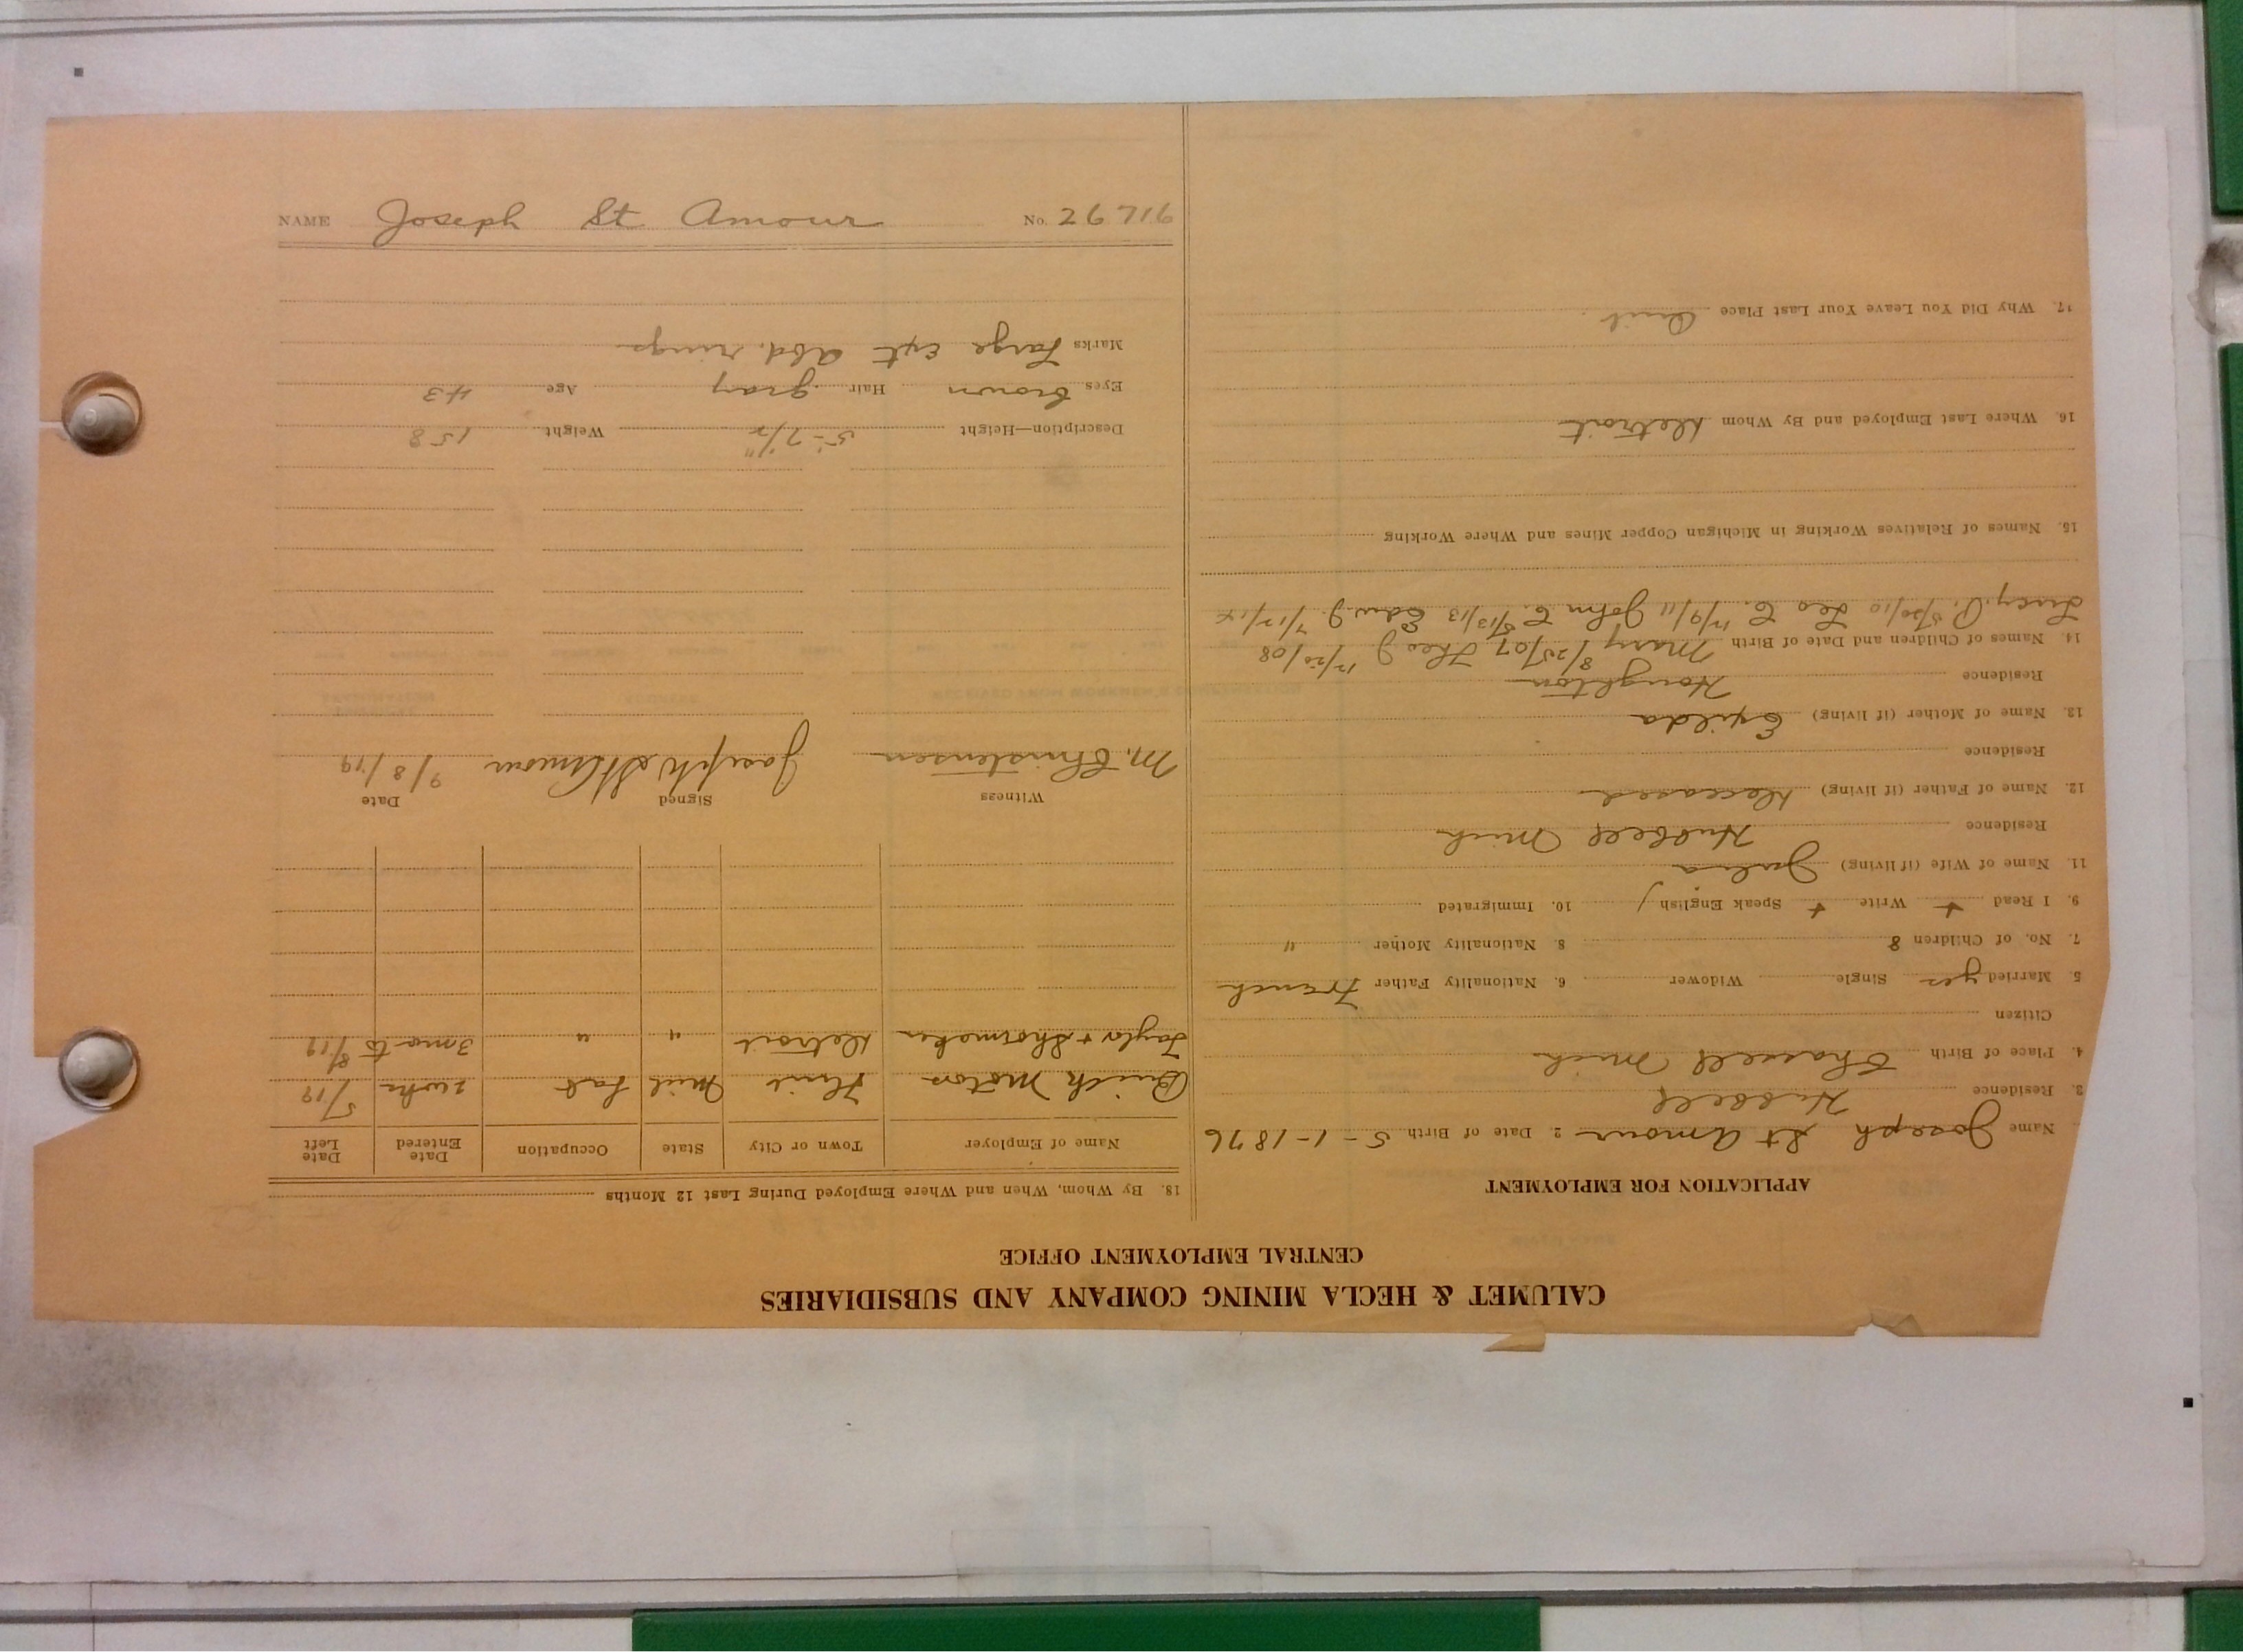 CALUMET & HECLA MINING COMPANY AND SUBSIDIARIES
CENTRAL EMPLOYMENT OFFICE
APPLICATION FOR EMPLOYMENT
Name Joseph St Amour 2. Date of Birth 5-1-1876
3. Residence Hubbell
4. Place of Birth Chassell Mich
Citizen
5. Married yes Single Widower 6. Nationality Father French
7. No. of Children 8 8. Nationality Mother "
9. I Read + Write + Speak English / 10. Immigrated
11. Name of Wife (if living) Julia
Residence Hubbell Mich
12. Name of Father (if living) Deceased
Residence
13. Name of Mother (if living) Exilda
Residence Houghton
14. Names of Children and Date of Birth Mary 8/25/07 Theo J 12/20/08
Lucy. P. 5/20/10 Leo E. 12/9/11 John E. 5/13/13 Edw J. 7/12/14
15. Names of Relatives Working in Michigan Copper Mines and Where Working
16. Where Last Employed and By Whom Detroit
17. Why Did You Leave Your Last Place Quit
18. By Whom, When and Where Employed During Last 12 Months
Name of Employer Town or City State Occupation Date Entered Date Left
Buick Motors Flint Mich Lab 2 wks 5/19
Taylor + Shoemaker Detroit " " 3 mo to 8/19
Witness Signed Date
M. Christensen Joseph St Amour 9/8/19
Description—Height 5-7 1/2" Weight 158
Eyes brown Hair gray Age 43
Marks Large Ext Abd. rings
NAME Joseph St Amour No. 26716